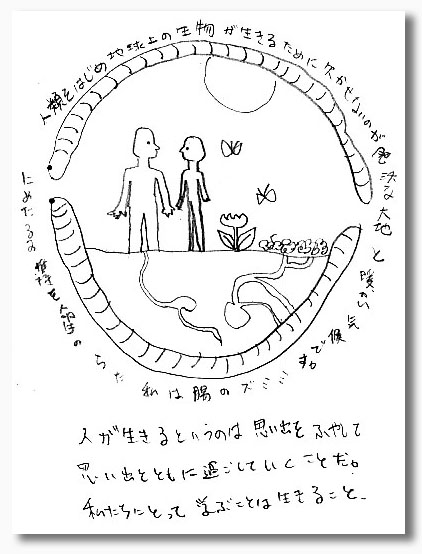 人類をはじめ地球上の生物が生きるために欠かせないのが肥沃な大地と暖かい気候です
ミミズの腸は私たちの を維持するために
人が生きるというのは思い出をふやして
思い出とともに過ごしていくことだ。
私たちにとって学ぶことは生きること。